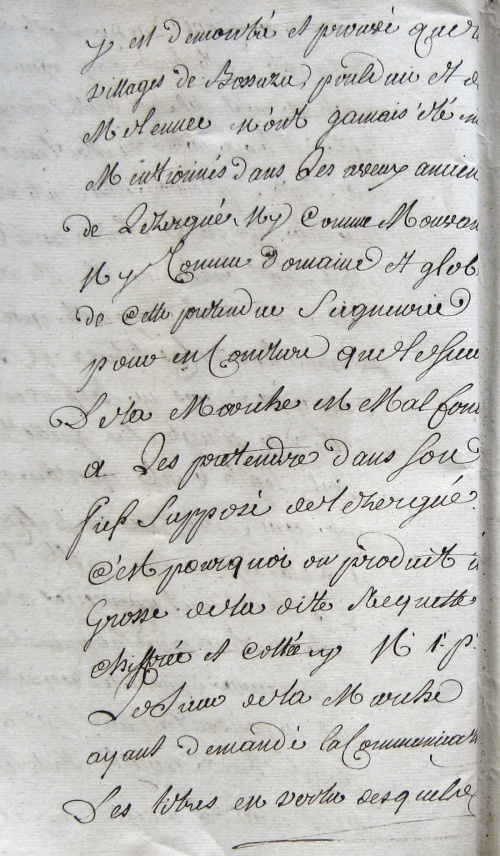 y est demontré et prouvé que
villages de Bossazu, pouldu et
n'ont gamais été
Mentionnés dans Les aveux ancien
de Lezergué, Ny Comme Mouvan
Ny Comme Domaine et glob
de cette pretendue Seigneurie
pour en Conclure que le sieur
De la Marche est Mal fon
a Les pretendre dans son
fief Supposé de Lezergué.
c'est pourquoi on produit
Grosse de la dite Requette
chiffrée et cottée N 1. p.
Le Sieur de la Marche
ayant demandé la Communica
Des titres en vertu desquels